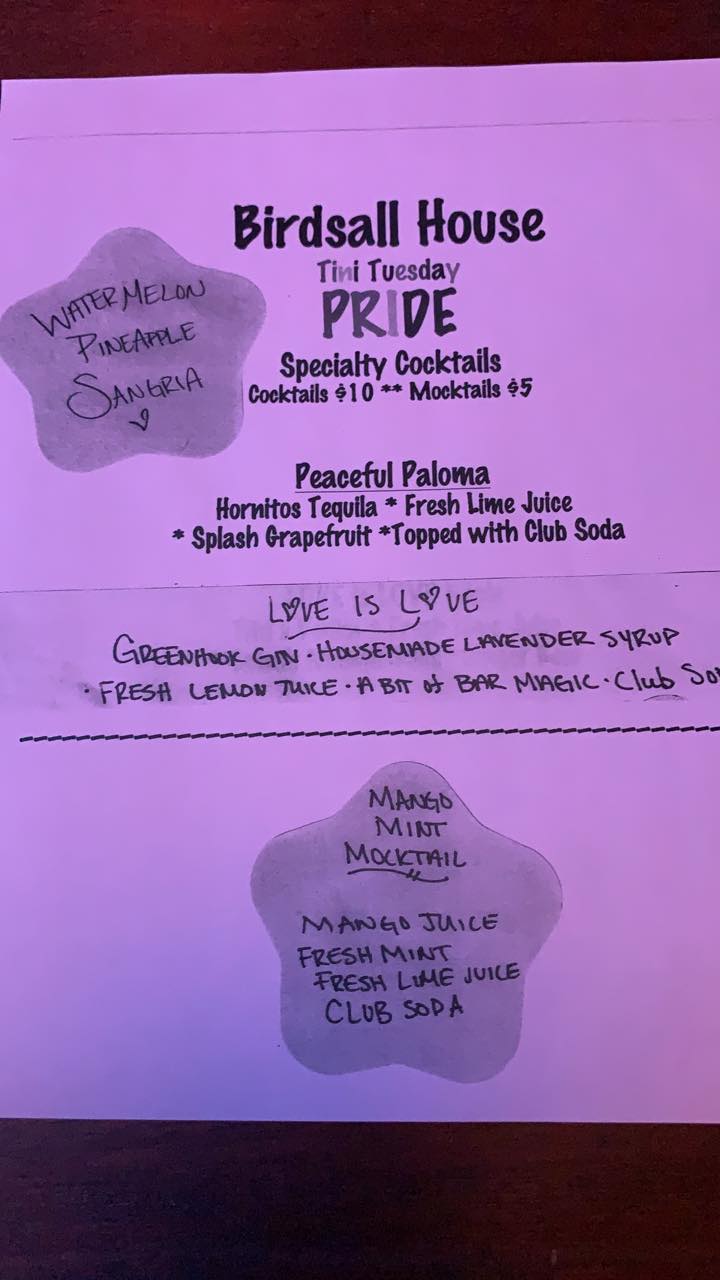 Birdsall House
Tini Tuesday
PRIDE
Specialty Cocktails
Cocktails $10 ** Mocktails $5
WATERMELON
PINEAPPLE
SANGRIA
Peaceful Paloma
Hornitos Tequila * Fresh Lime Juice
* Splash Grapefruit *Topped with Club Soda
LOVE IS LOVE
GREENHOOK GIN · HOUSEMADE LAVENDER SYRUP
· FRESH LEMON JUICE · A BIT of BAR MAGIC · Club So
MANGO
MINT
MOCKTAIL
MANGO JUICE
FRESH MINT
FRESH LIME JUICE
CLUB SODA